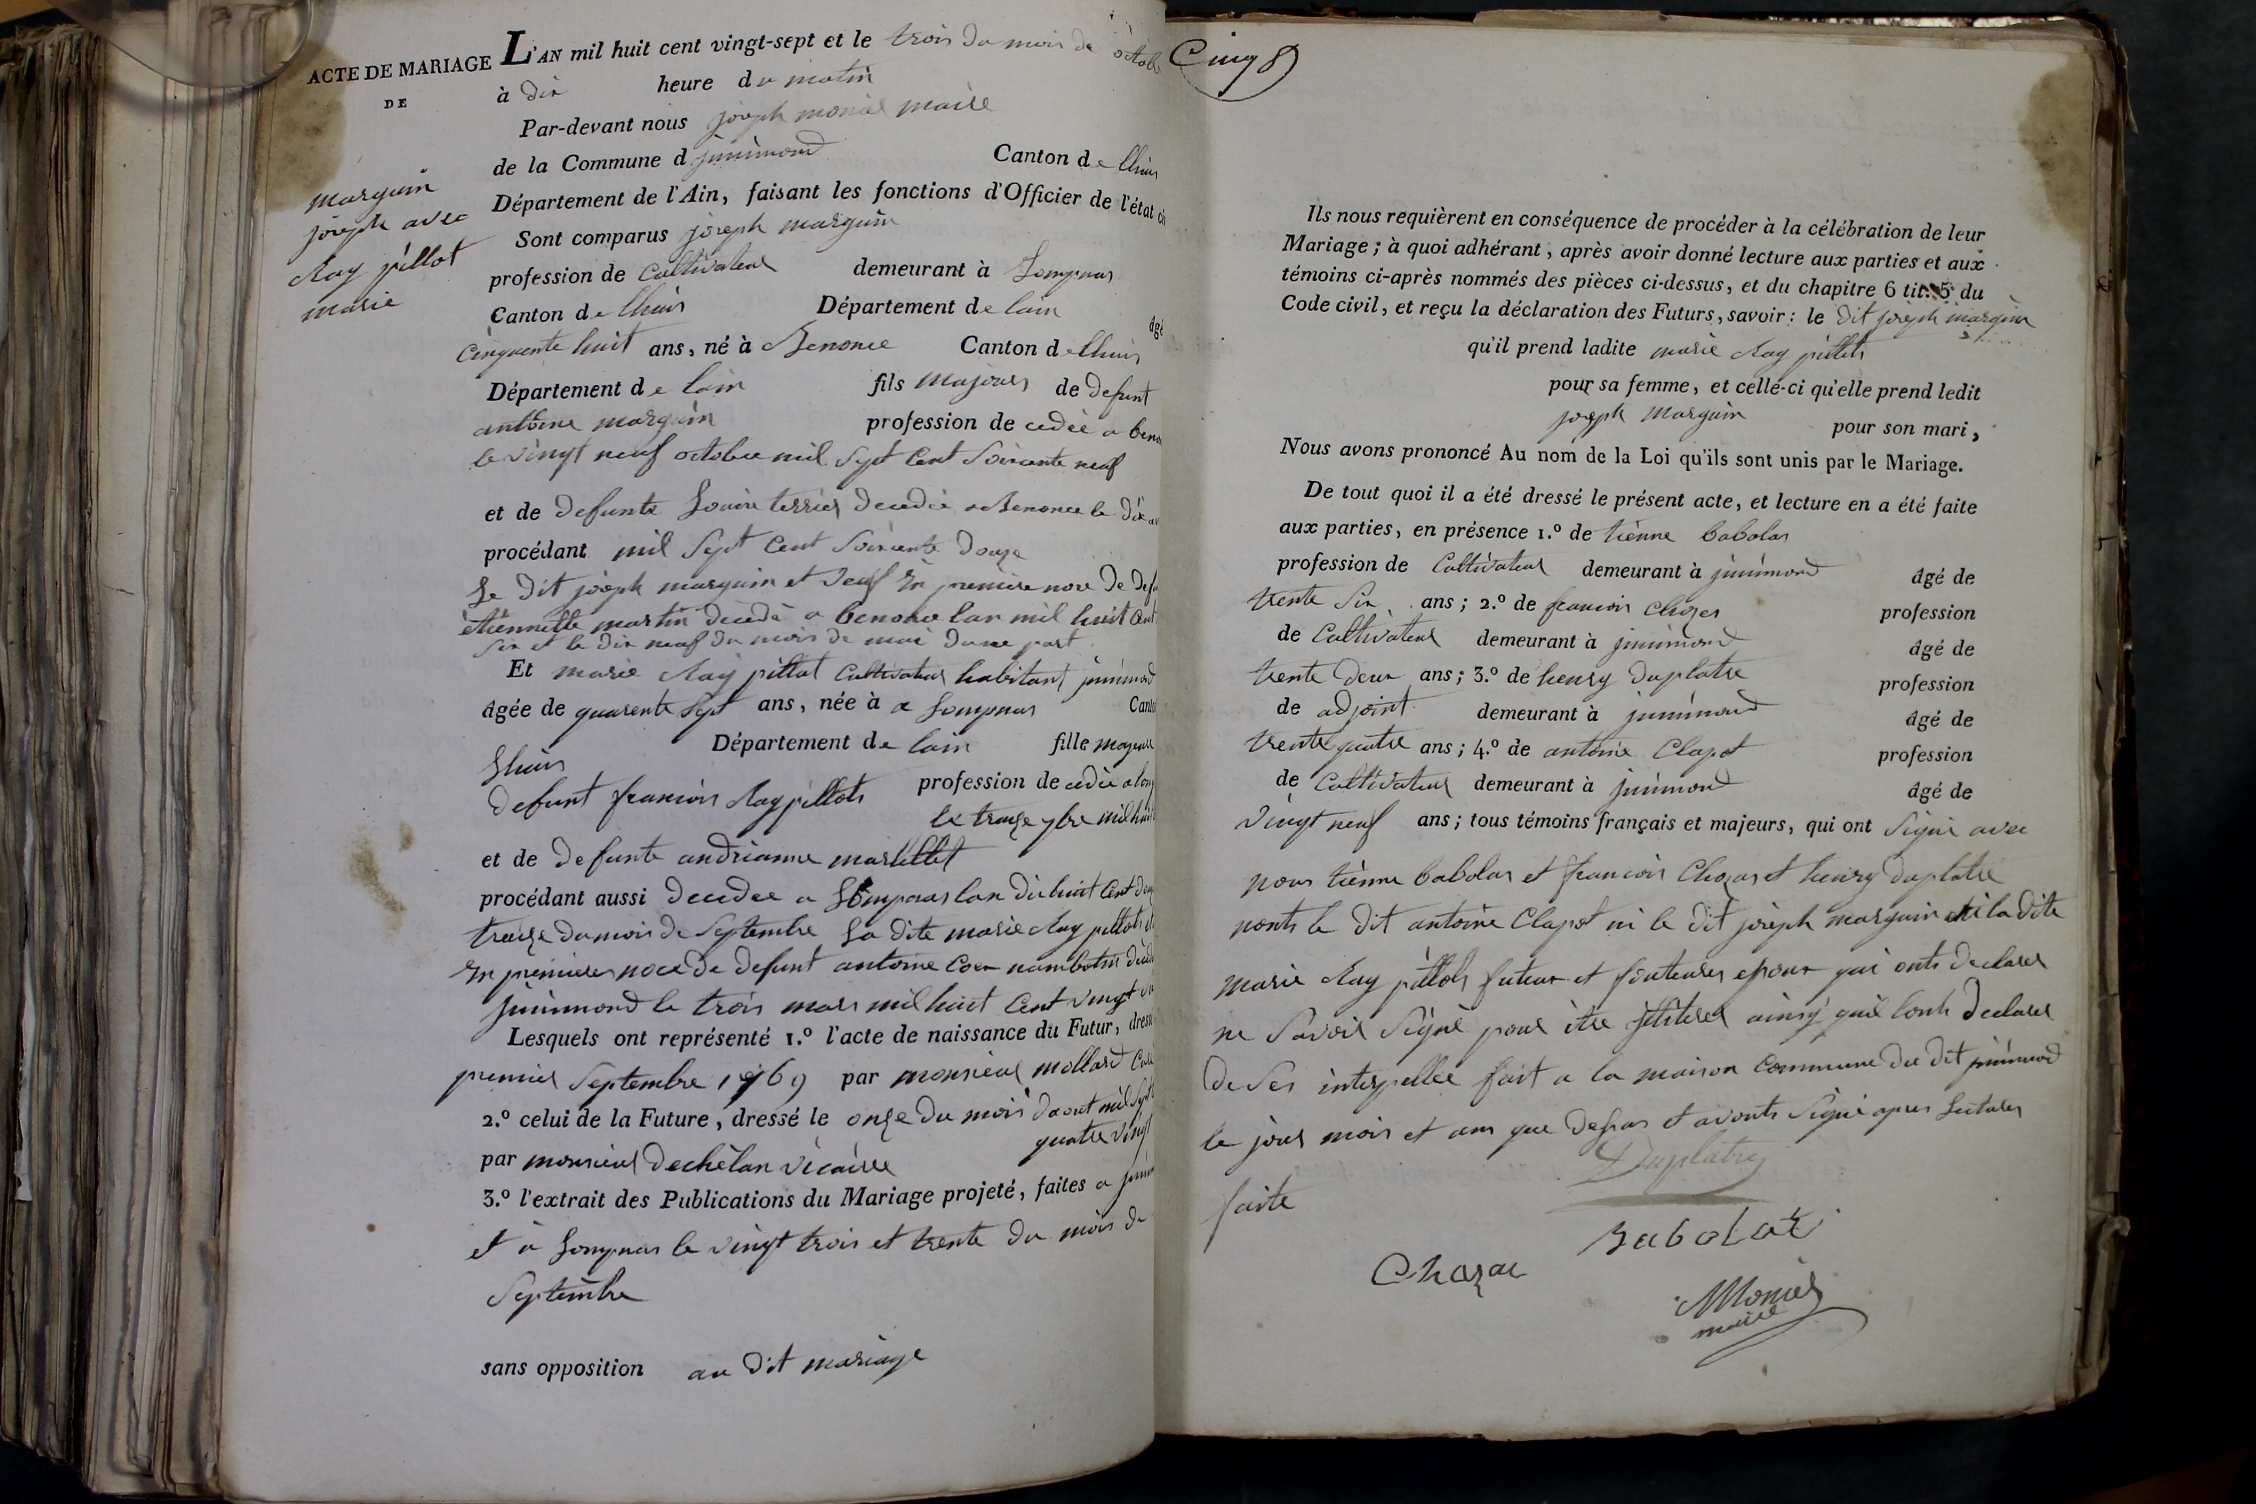 ACTE DE MARIAGE
DE
marguin
joseph avec
Ray pillot
marie
L'AN mil huit cent vingt-sept et le trois du mois de octob
à dix heure du matin
Par-devant nous joseph monier maire
de la Commune d junimond Canton de lhuis
Département de l'Ain, faisant les fonctions d'Officier de l'état ci
Sont comparus joseph marguin
profession de Cultivateur demeurant à Lompnas
Canton de lhuis Département de lain âgé
Cinquente huit ans, né à Benonce Canton de lhuis
Département de lain fils majeur de defunt
antoine marguin profession de cedée a beno
le vingt neuf octobre mil sept Cent Soixante neuf
et de defunte Louise terrier decedée a Benonce le dix
procédant mil Sept Cent Soixante douze
Le dit joseph marguin et veuf En premiere noce De def
étiennette martin décédé a benonce lan mil huit Cent
Six et le dix neuf du mois de mai dune part
Et marie Ray pillot Cultivateur habitant junimond
âgée de quarente Sept ans, née à a Lompnas Canto
Lhuis Département de lain fille majeure
defunt francois Ray pillots profession de cedée a lom
le treize 7bre mil hui
et de defunte andrianne martellet
procédant aussi decedee a Lompnas lan dix huit Cent douze
treize du mois de Septembre La dite marie Ray pillots
En premieres noce De defunt antoine Coer nambotin décéd
junimond le trois mars mil huit Cent vingt
Lesquels ont représenté 1.º l'acte de naissance du Futur, dress
premier Septembre 1769 par monsieur mollard Curé
2.º celui de la Future, dressé le onze du mois daout mil Sept
quatre vingt
par monsieur dechelan vicaire
3.º l'extrait des Publications du Mariage projeté, faites a junim
et a Lompnas le vingt trois et trente du mois de
Septembre
sans opposition au dit mariage
Cinq
Ils nous requièrent en conséquence de procéder à la célébration de leur
Mariage; à quoi adhérant, après avoir donné lecture aux parties et aux
témoins ci-après nommés des pièces ci-dessus, et du chapitre 6 tit. 5 du
Code civil, et reçu la déclaration des Futurs, savoir: le dit joseph marguin
qu'il prend ladite marie Ray pillots
pour sa femme, et celle-ci qu'elle prend ledit
joseph marguin pour son mari,
Nous avons prononcé Au nom de la Loi qu'ils sont unis par le Mariage.
De tout quoi il a été dressé le présent acte, et lecture en a été faite
aux parties, en présence 1.º de tienne babolas
profession de Cultivateur demeurant à junimond âgé de
trente Six ans; 2.º de francois Chozas profession
de Cultivateur demeurant à junimond âgé de
trente deux ans; 3.º de henry duplatre profession
de adjoint demeurant à junimond âgé de
trente quatre ans; 4.º de antoine Clapot profession
de Cultivateur demeurant à junimond âgé de
vingt neuf ans; tous témoins français et majeurs, qui ont Signé avec
nous tienne babolas et francois Chozas et henry duplatre
nonts le dit antoine Clapot ni le dit joseph marguin ni la dite
marie Ray pillots futur et futeures epoux qui onts declarer
ne Savoir Signé pour être illiteres ainsy quil lonts declarer
de Ses interpellée fait a la maison Commune du dit junimond
le jour mois et ans que desus et avonts Signé apres Lectures
faite
Duplatre
Babolat
Chozas
Monier
maire